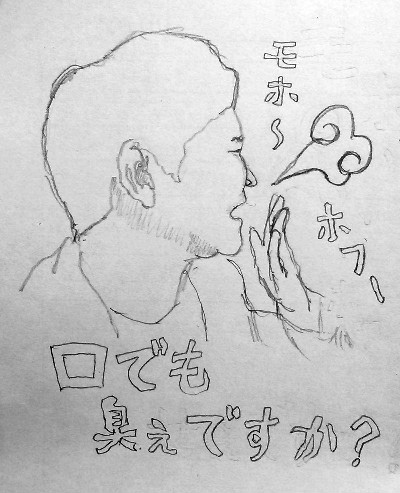 モホ〜
ホフー
口でも
臭ぇですか?